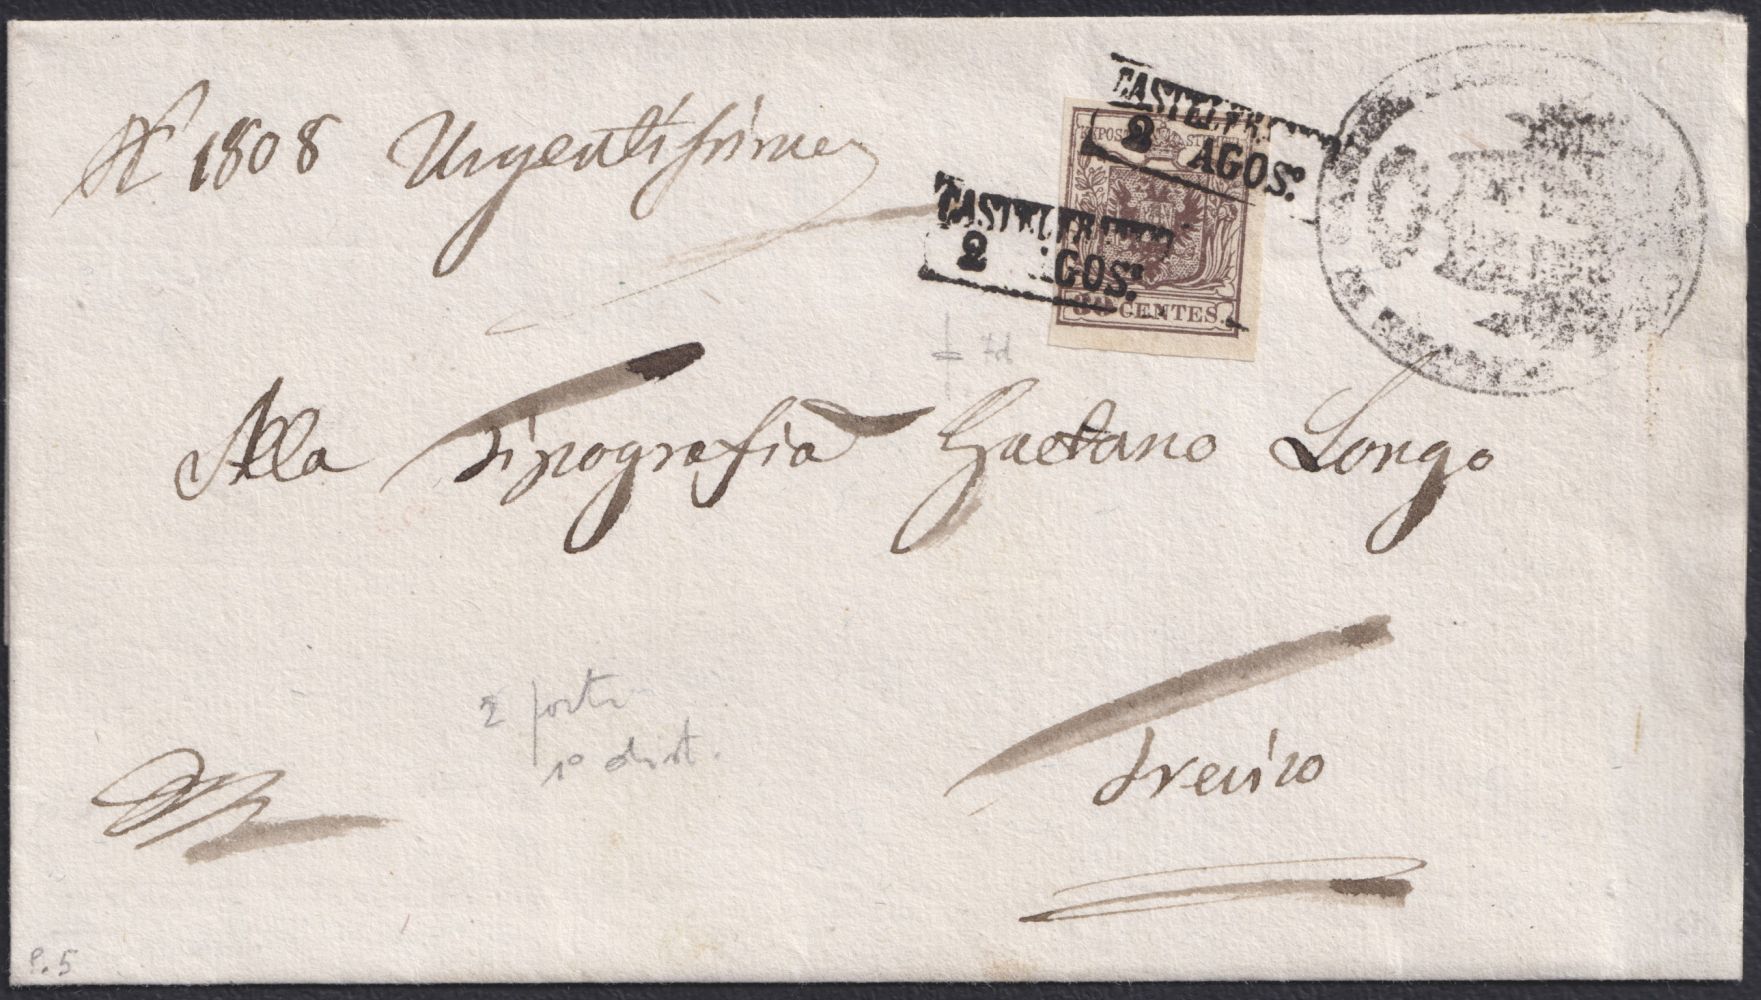 N° 1808 Urgentissima
CASTELFRANCO
2 AGOS.°
CASTELFRANCO
2 AGOS.°
KKPOST STEMPEL
30 CENTES.
7d
Alla Tipografia Gaetano Longo
2 porti
1° dist.
Treviso
P. 5